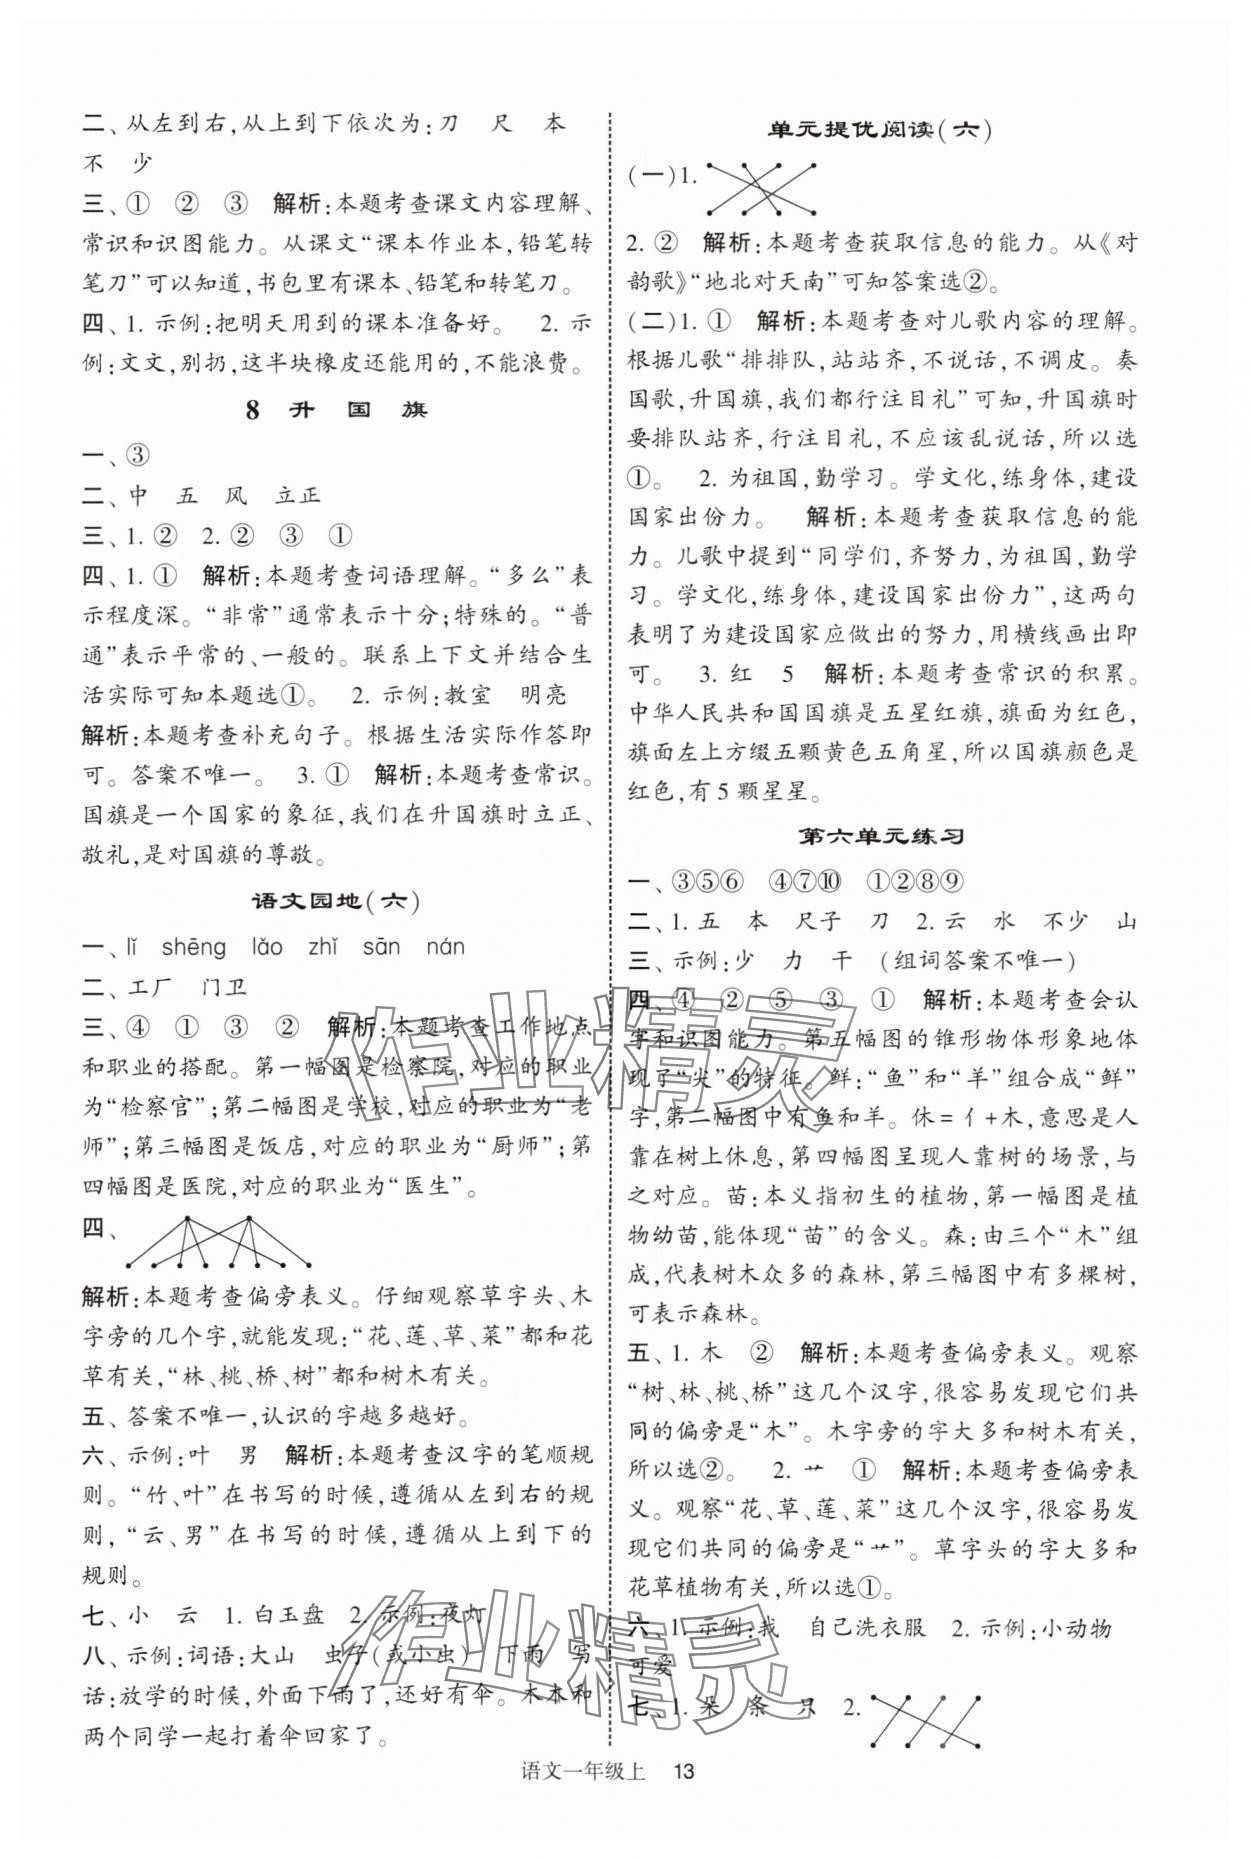 二、从左到右,从上到下依次为:刀　尺　本
不　少
三、①　②　③　解析:本题考查课文内容理解、
常识和识图能力。从课文“课本作业本,铅笔转
笔刀”可以知道,书包里有课本、铅笔和转笔刀。
四、1. 示例:把明天用到的课本准备好。　2. 示
例:文文,别扔,这半块橡皮还能用的,不能浪费。
8　升　国　旗
一、③
二、中　五　风　立正
三、1. ②　2. ②　③　①
四、1. ①　解析:本题考查词语理解。“多么”表
示程度深。“非常”通常表示十分;特殊的。“普
通”表示平常的、一般的。联系上下文并结合生
活实际可知本题选①。　2. 示例:教室　明亮
解析:本题考查补充句子。根据生活实际作答即
可。答案不唯一。　3. ①　解析:本题考查常识。
国旗是一个国家的象征,我们在升国旗时立正、
敬礼,是对国旗的尊敬。
语文园地(六)
一、lǐ　shēng　lǎo　zhǐ　sān　nán
二、工厂　门卫
三、④　①　③　②　解析:本题考查工作地点
和职业的搭配。第一幅图是检察院,对应的职业
为“检察官”;第二幅图是学校,对应的职业为“老
师”;第三幅图是饭店,对应的职业为“厨师”;第
四幅图是医院,对应的职业为“医生”。
四、
解析:本题考查偏旁表义。仔细观察草字头、木
字旁的几个字,就能发现:“花、莲、草、菜”都和花
草有关,“林、桃、桥、树”都和树木有关。
五、答案不唯一,认识的字越多越好。
六、示例:叶　男　解析:本题考查汉字的笔顺规
则。“竹、叶”在书写的时候,遵循从左到右的规
则,“云、男”在书写的时候,遵循从上到下的
规则。
七、小　云　1. 白玉盘　2. 示例:夜灯
八、示例:词语:大山　虫子(或小虫)　下雨　写
话:放学的时候,外面下雨了,还好有伞。木木和
两个同学一起打着伞回家了。
单元提优阅读(六)
(一)1.
2. ②　解析:本题考查获取信息的能力。从《对
韵歌》“地北对天南”可知答案选②。
(二)1. ①　解析:本题考查对儿歌内容的理解。
根据儿歌“排排队,站站齐,不说话,不调皮。奏
国歌,升国旗,我们都行注目礼”可知,升国旗时
要排队站齐,行注目礼,不应该乱说话,所以选
①。　2. 为祖国,勤学习。学文化,练身体,建设
国家出份力。　解析:本题考查获取信息的能
力。儿歌中提到“同学们,齐努力,为祖国,勤学
习。学文化,练身体,建设国家出份力”,这两句
表明了为建设国家应做出的努力,用横线画出即
可。　3. 红　5　解析:本题考查常识的积累。
中华人民共和国国旗是五星红旗,旗面为红色,
旗面左上方缀五颗黄色五角星,所以国旗颜色是
红色,有5颗星星。
第六单元练习
一、③⑤⑥　④⑦⑩　①②⑧⑨
二、1. 五　本　尺子　刀　2. 云　水　不少　山
三、示例:少　力　干　(组词答案不唯一)
四、④　②　⑤　③　①　解析:本题考查会认
字和识图能力。第五幅图的锥形物体形象地体
现了“尖”的特征。鲜:“鱼”和“羊”组合成“鲜”
字,第二幅图中有鱼和羊。休=亻+木,意思是人
靠在树上休息,第四幅图呈现人靠树的场景,与
之对应。苗:本义指初生的植物,第一幅图是植
物幼苗,能体现“苗”的含义。森:由三个“木”组
成,代表树木众多的森林,第三幅图中有多棵树,
可表示森林。
五、1. 木　②　解析:本题考查偏旁表义。观察
“树、林、桃、桥”这几个汉字,很容易发现它们共
同的偏旁是“木”。木字旁的字大多和树木有关,
所以选②。　2. 艹　①　解析:本题考查偏旁表
义。观察“花、草、莲、菜”这几个汉字,很容易发
现它们共同的偏旁是“艹”。草字头的字大多和
花草植物有关,所以选①。
六、1. 示例:我　自己洗衣服　2. 示例:小动物
可爱
七、1. 朵　条　只　2.
语文一年级上　13
作业精灵
作业精灵